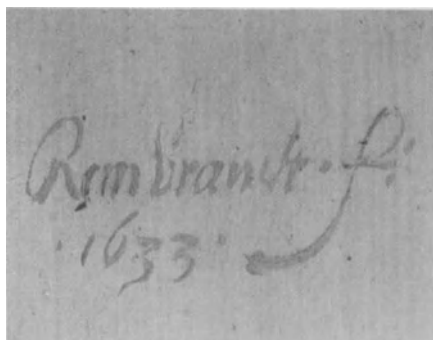 Rembrandt·f:
·1633·